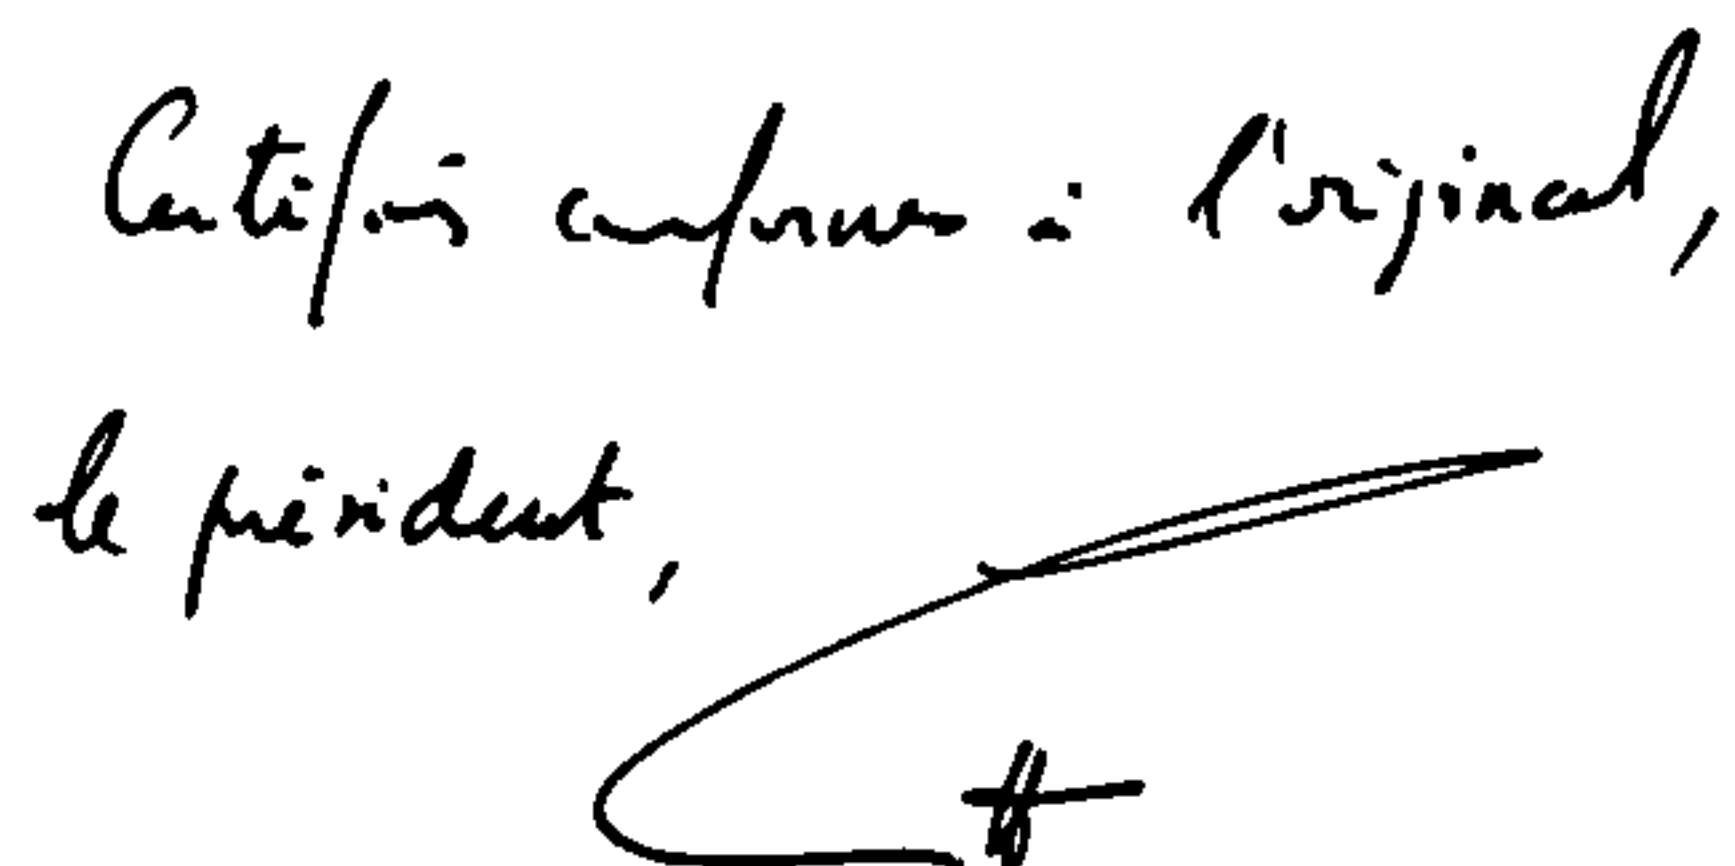 Certifiés conformes à l'original,
le président,